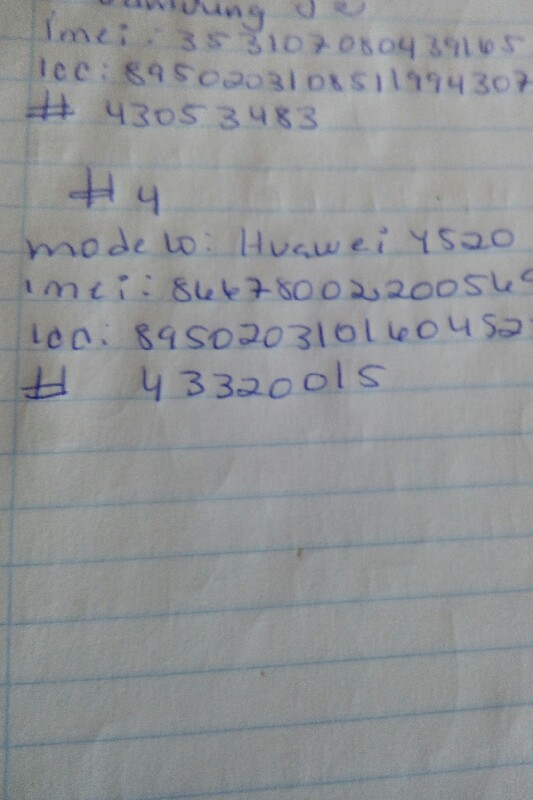 imei: 353107080439165
icc: 8950203108511994307
# 43053483
# 4
modelo: Huawei Y520
imei: 866780022200569
icc: 895020310160452
# 43320015